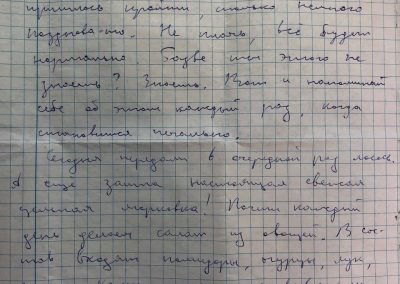 пришлось пройти, сколько немного
поздновато. Не плачь, всё будет
нормально. Разве ты этого не
знаешь? Знаешь. Вот и напоминай
себе об этом каждый раз, когда
становится печально.
Сегодня передали в очередной раз лосось.
А еще зашла настоящая свежая
цельная морковка! Почти каждый
день делаем салат из овощей. В сос-
тав входят помидоры, огурцы, лук,